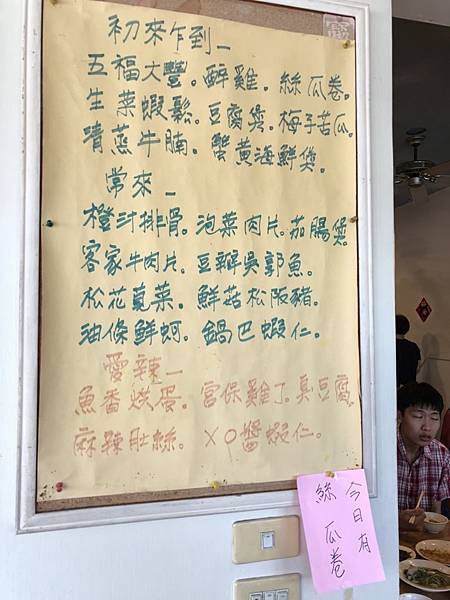 初來乍到—
五福大豐。醉雞。絲瓜卷。
生菜蝦鬆。豆腐煲。梅子苦瓜。
清蒸牛腩。蟹黃海鮮煲。
常來—
橙汁排骨。泡菜肉片。茄腸煲。
客家牛肉片。豆瓣吳郭魚。
松花莧菜。鮮菇松阪豬。
油條鮮蚵。鍋巴蝦仁。
愛辣—
魚香烘蛋。宮保雞丁。臭豆腐。
麻辣肚絲。XO醬蝦仁。
今日有
絲瓜卷